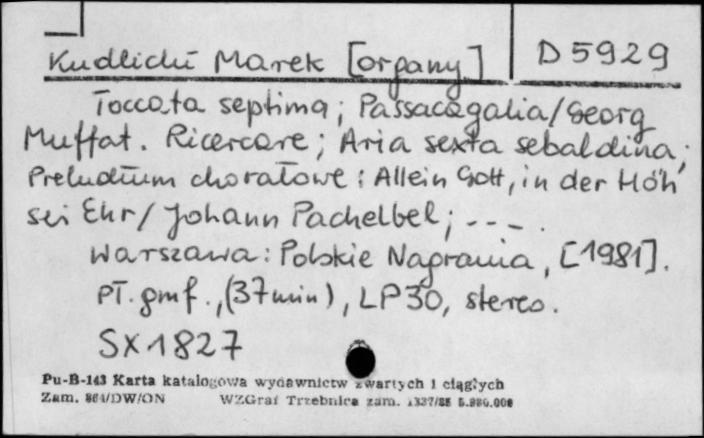 Kudlicki Marek [organy] D 5929
Toccata septima; Passacagalia/Georg
Muffat. Ricercare; Aria sexta sebaldina;
Preludium chorałowe: Allein Gott, in der Höh'
sei Ehr/Johann Pachelbel; ---.
Warszawa: Polskie Nagrania, [1981].
Pł. gmf., (37min), LP30, stereo.
SX 1827
Pu-B-143 Karta katalogowa wydawnictw zwartych i ciągłych
Zam. 864/DW/ON WZGraf Trzebnica zam. 1337/85 5.980.000